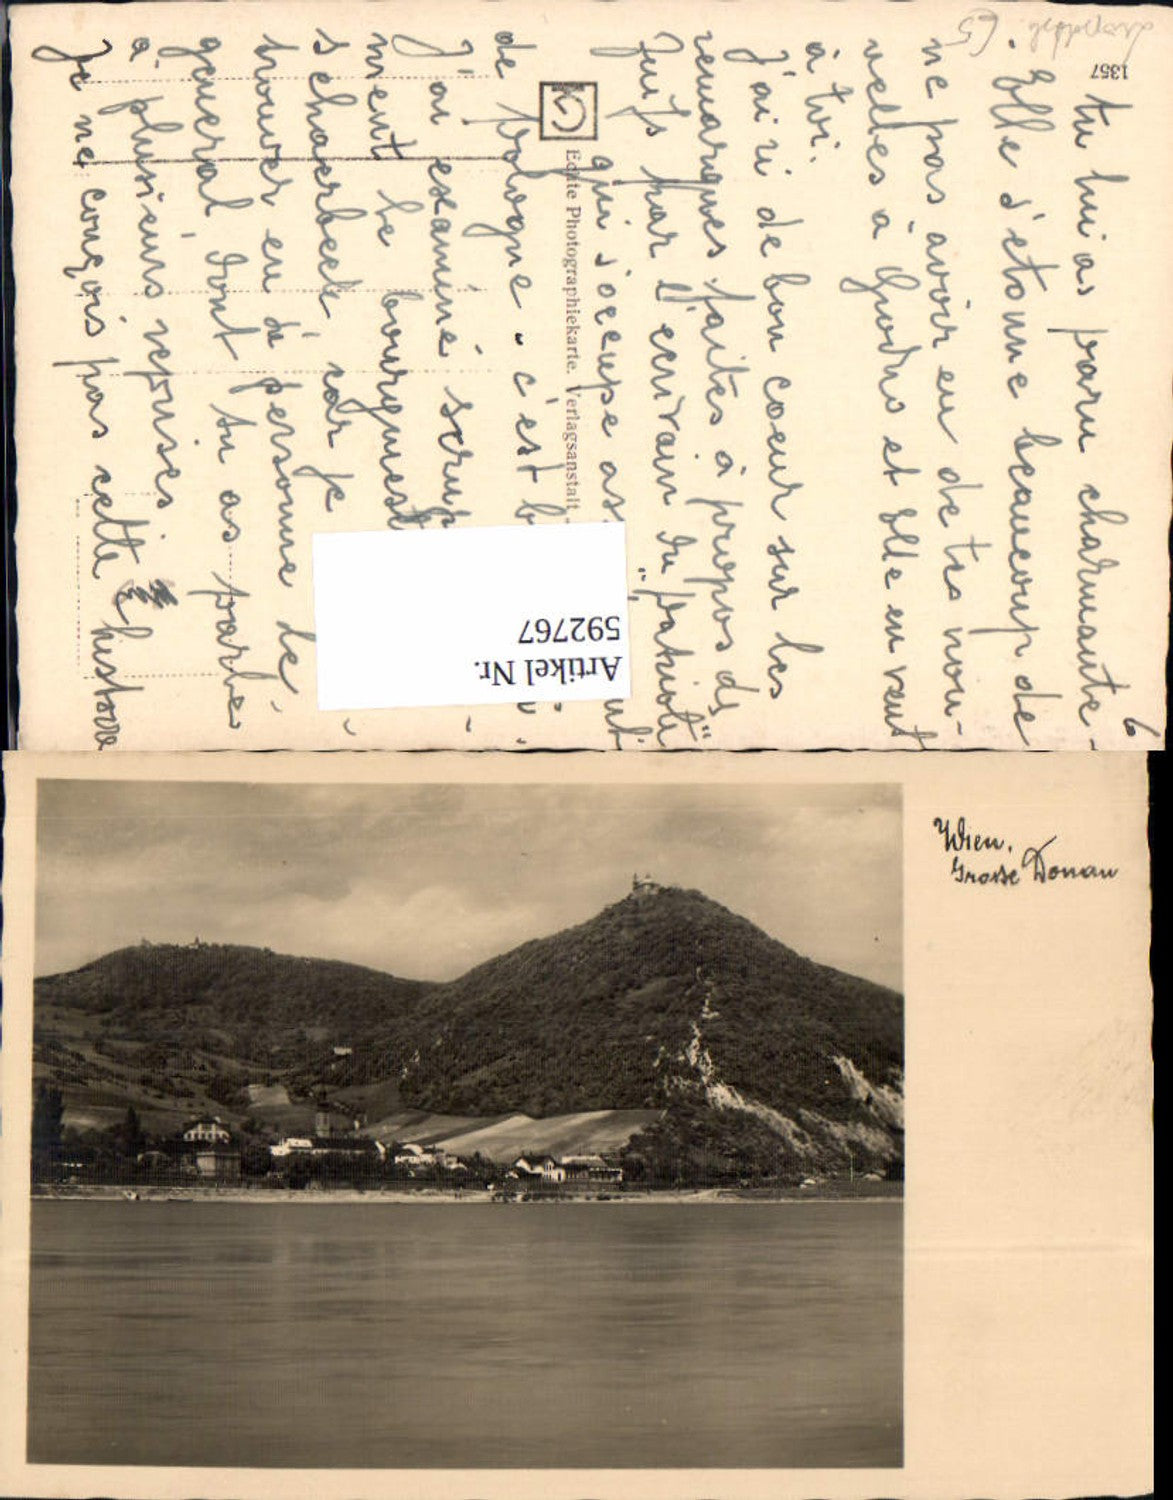 6
tu lui as paru charmante.
Elle s'étonne beaucoup de
ne pas avoir eu de tes nou-
velles à Gruodno et Elle en veut
à toi.
J'ai ri de bon coeur sur les
remarques faites à propos des
Juifs par l'écrivain du "patriote"
qui s'occupe
de Pologne. c'est
J'ai examiné
ment le
Schaerbeek car je
trouver en sa personne le
général dont tu as parlé
à plusieurs reprises
Je ne conçois pas cette histoire
1357
Echte Photographiekarte. Verlagsanstalt
Artikel Nr.
592767
Wien.
Grosse Donau